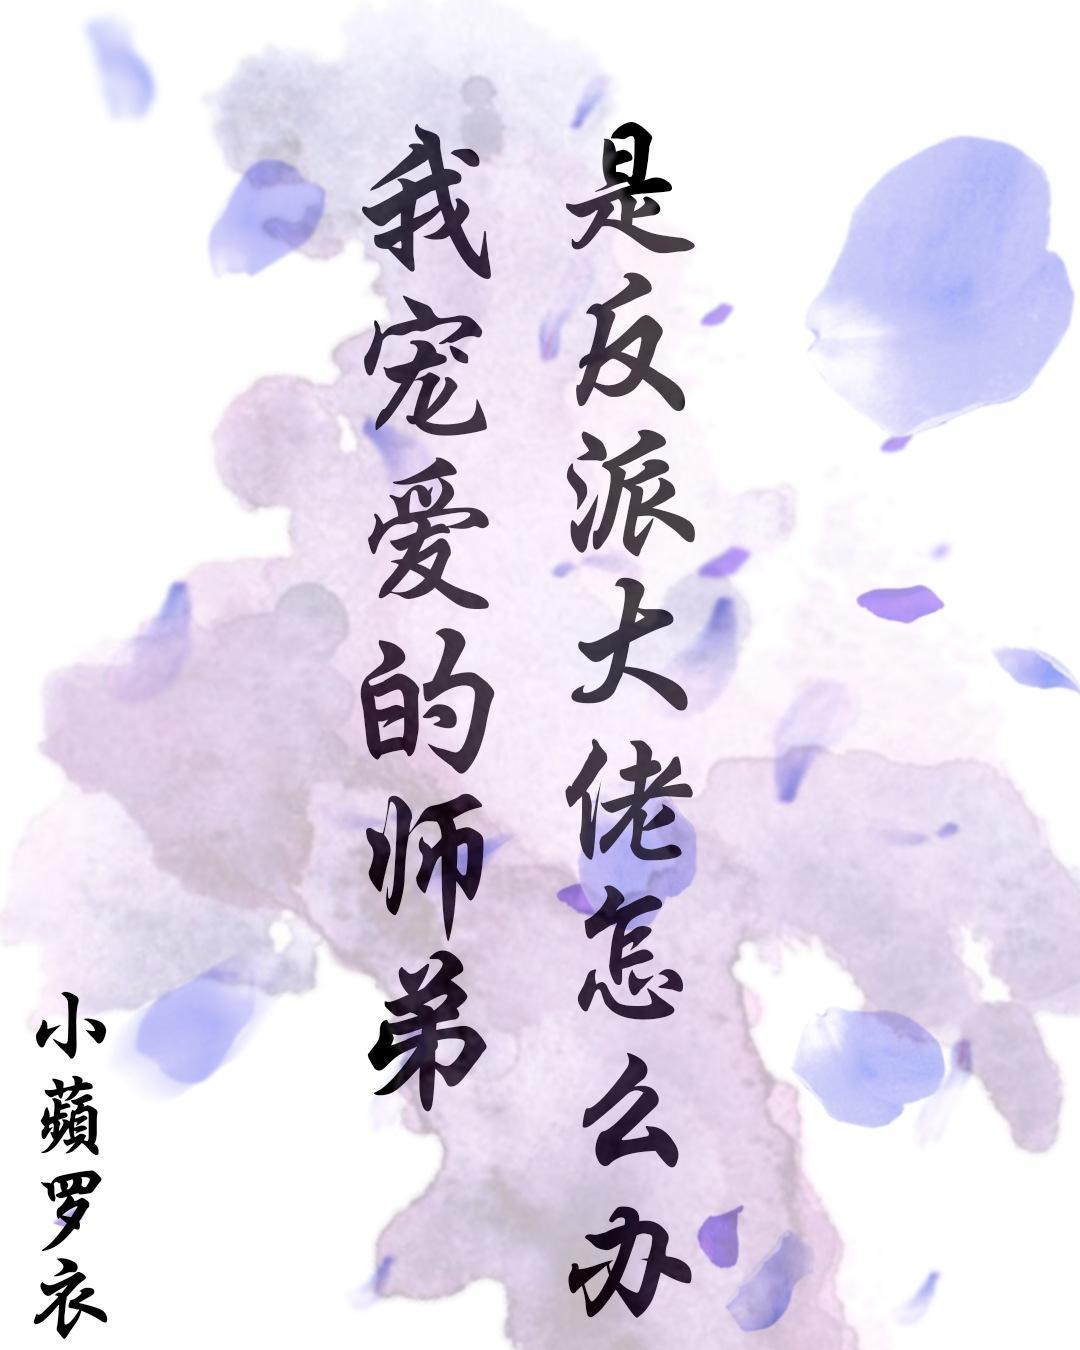 我宠爱的师弟
是反派大佬怎么办
小蘋罗衣